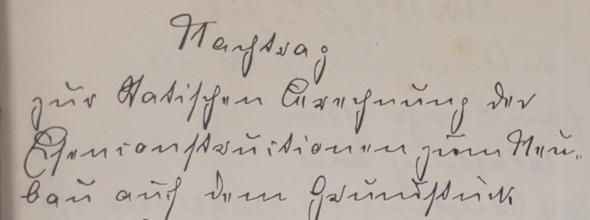 Nachtrag
zur statischen Berechnung der
Eisenconstructionen zum Neu-
bau auf dem Grundstück